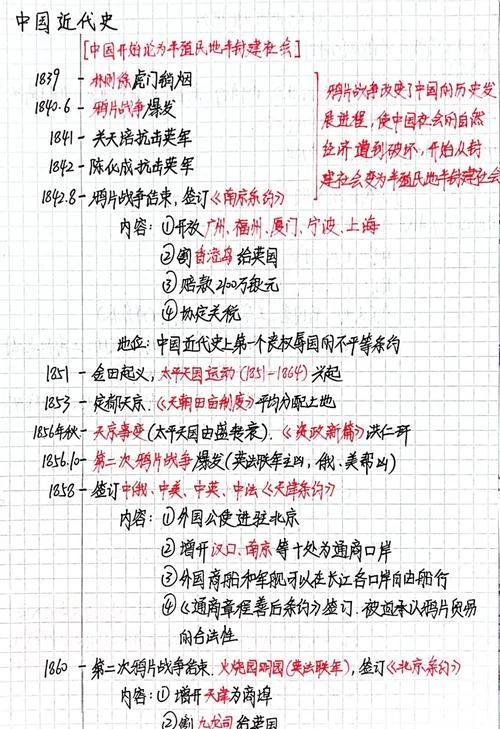 中国近代史
[中国开始沦为半殖民地半封建社会]
1839 - 林则徐虎门销烟
1840.6 - 鸦片战争爆发
1841 - 关天培抗击英军
1842 - 陈化成抗击英军
鸦片战争改变了中国的历史发
展进程，使中国社会的自然
经济遭到破坏，开始从封
建社会变为半殖民地半封建社会
1842.8 - 鸦片战争结束，签订《南京条约》
内容：①开放广州、福州、厦门、宁波、上海
②割香港岛给英国
③赔款2100万银元
④协定关税
地位：中国近代史上第一个丧权辱国的不平等条约
1851 - 金田起义，太平天国运动(1851-1864)兴起
1853 - 定都天京，《天朝田亩制度》平均分配土地
1856年秋 - 天京事变(太平天国由盛转衰)．《资政新篇》洪仁玕
1856.10 - 第二次鸦片战争爆发(英法联军主凶，俄、美帮凶)
1858 - 签订中俄、中美、中英、中法《天津条约》
内容：①外国公使进驻北京
②增开汉口、南京等十处为通商口岸
③外国商船和军舰可以在长江各口岸自由航行
④《通商章程善后条约》签订．被迫承认鸦片贸易
的合法性
1860 - 第二次鸦片战争结束．火烧圆明园(英法联军)，签订《北京条约》
内容：①增开天津为商埠
②割九龙司给英国